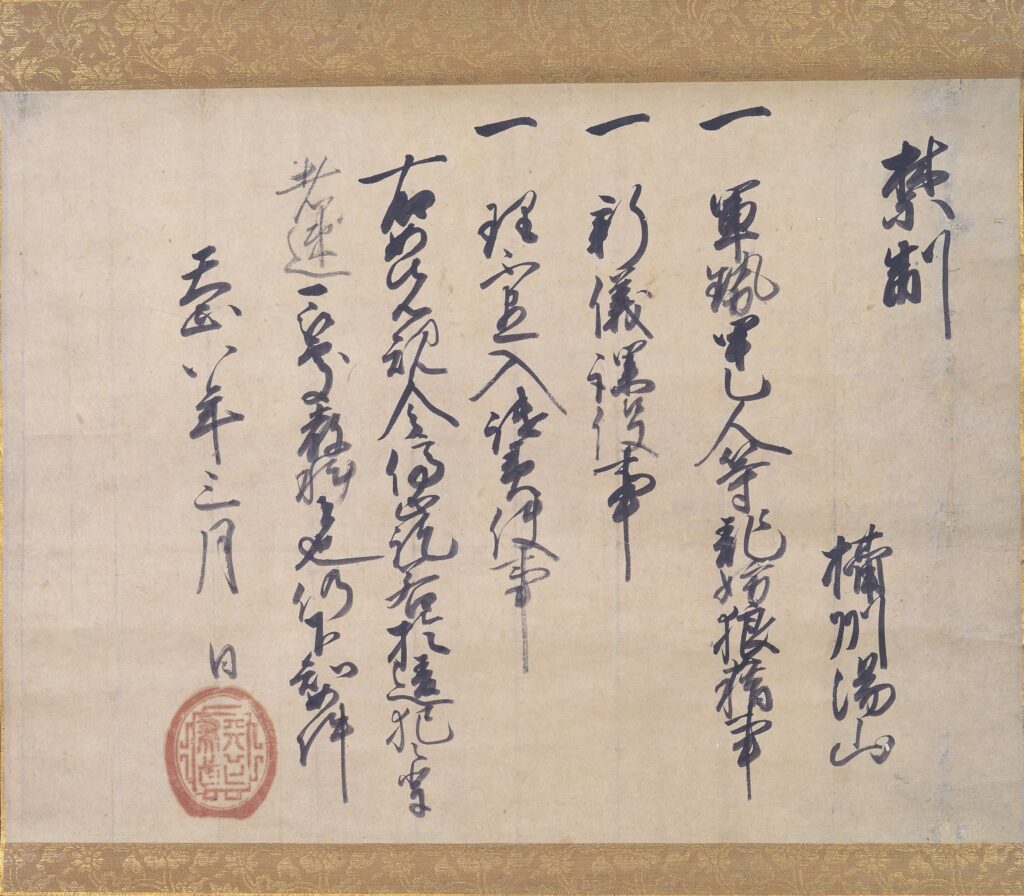 禁制
攝州湯山
一 軍勢甲乙人等乱妨狼藉事
一 新儀課役事
一 理不尽入譴責使事
右如此先規令停止訖若於違犯之輩
者速可處嚴科者也仍下知如件
天正八年三月 日